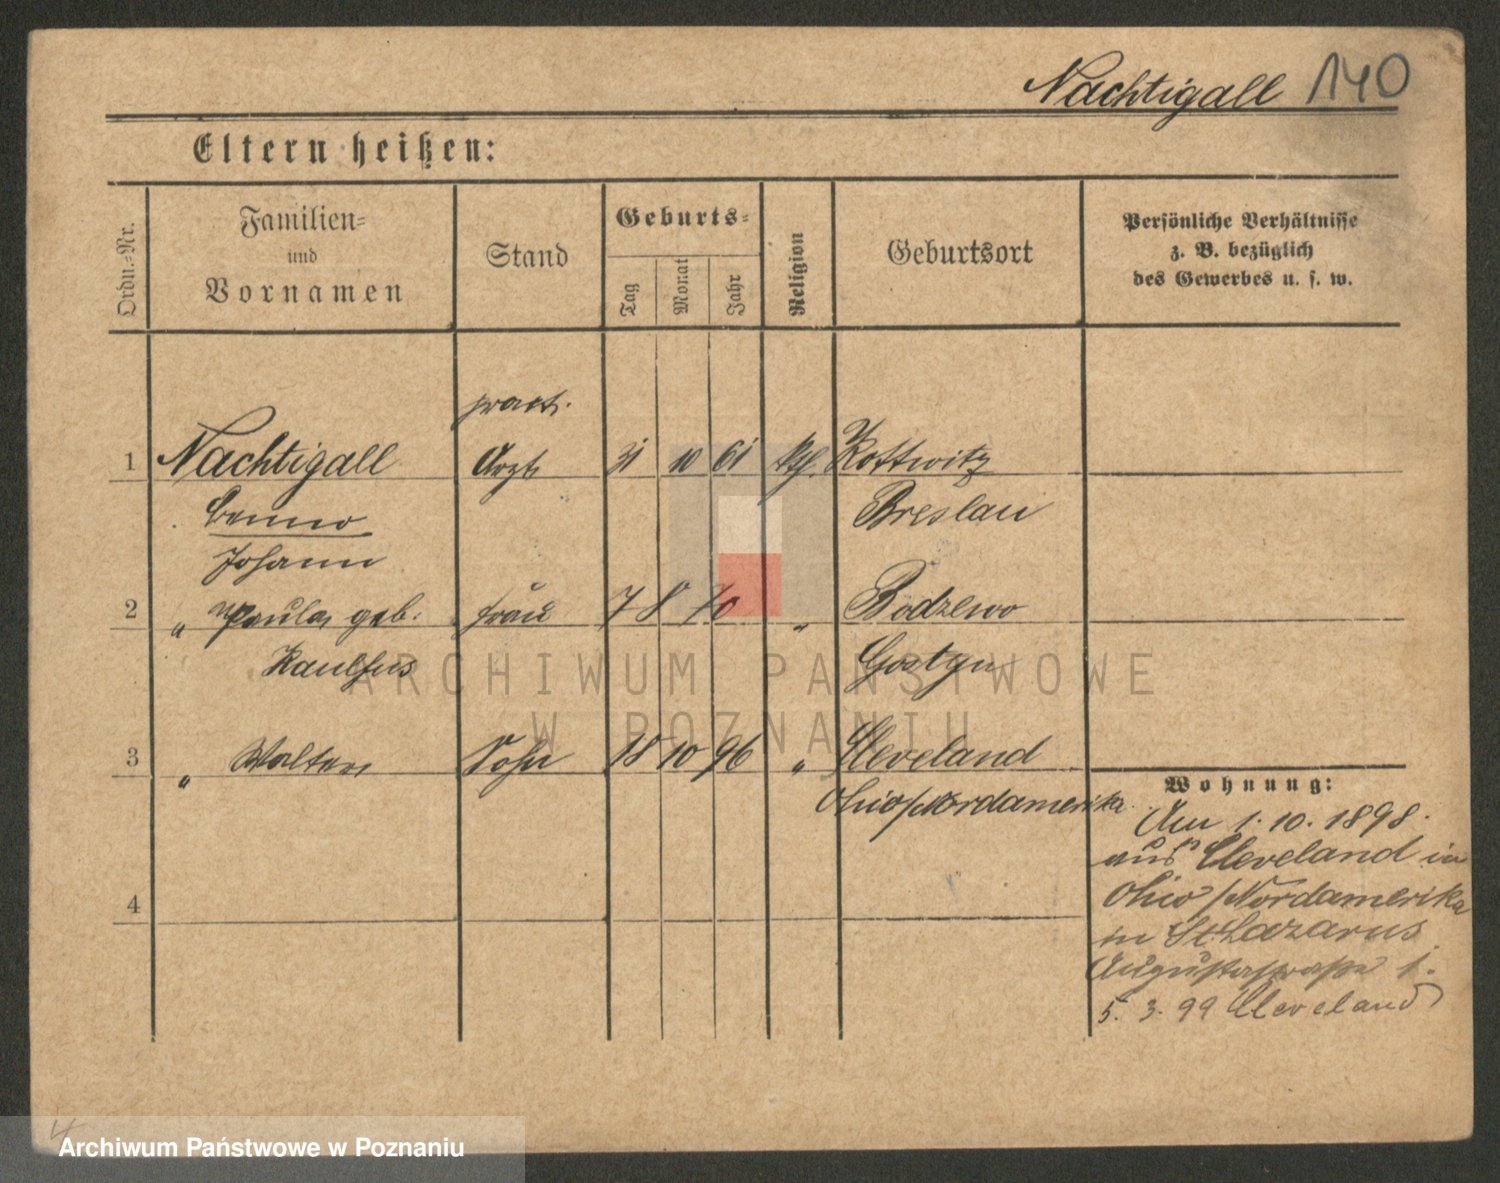 Nachtigall 140
Eltern heißen:
Ordn.-Nr.
Familien-
und
Vornamen
Stand
Geburts-
Tag
Monat
Jahr
Religion
Geburtsort
Persönliche Verhältnisse
z. B. bezüglich
des Gewerbes u. s. w.
pract.
1 Nachtigall Arzt 31 10 61 Kottwitz
Benno Breslau
Johann
2 " Paula geb. Frau 7 8 70 " Bodzewo
Kaulfus Gostyn
3 " Walter Sohn 18 10 96 " Cleveland
Ohio/Nordamerika
4
Wohnung:
Am 1. 10. 1898.
aus Cleveland in
Ohio/Nordamerika
in St. Lazarus
Augustastraße 1.
5. 3. 99 Cleveland
ARCHIWUM PAŃSTWOWE
W POZNANIU
4
Archiwum Państwowe w Poznaniu